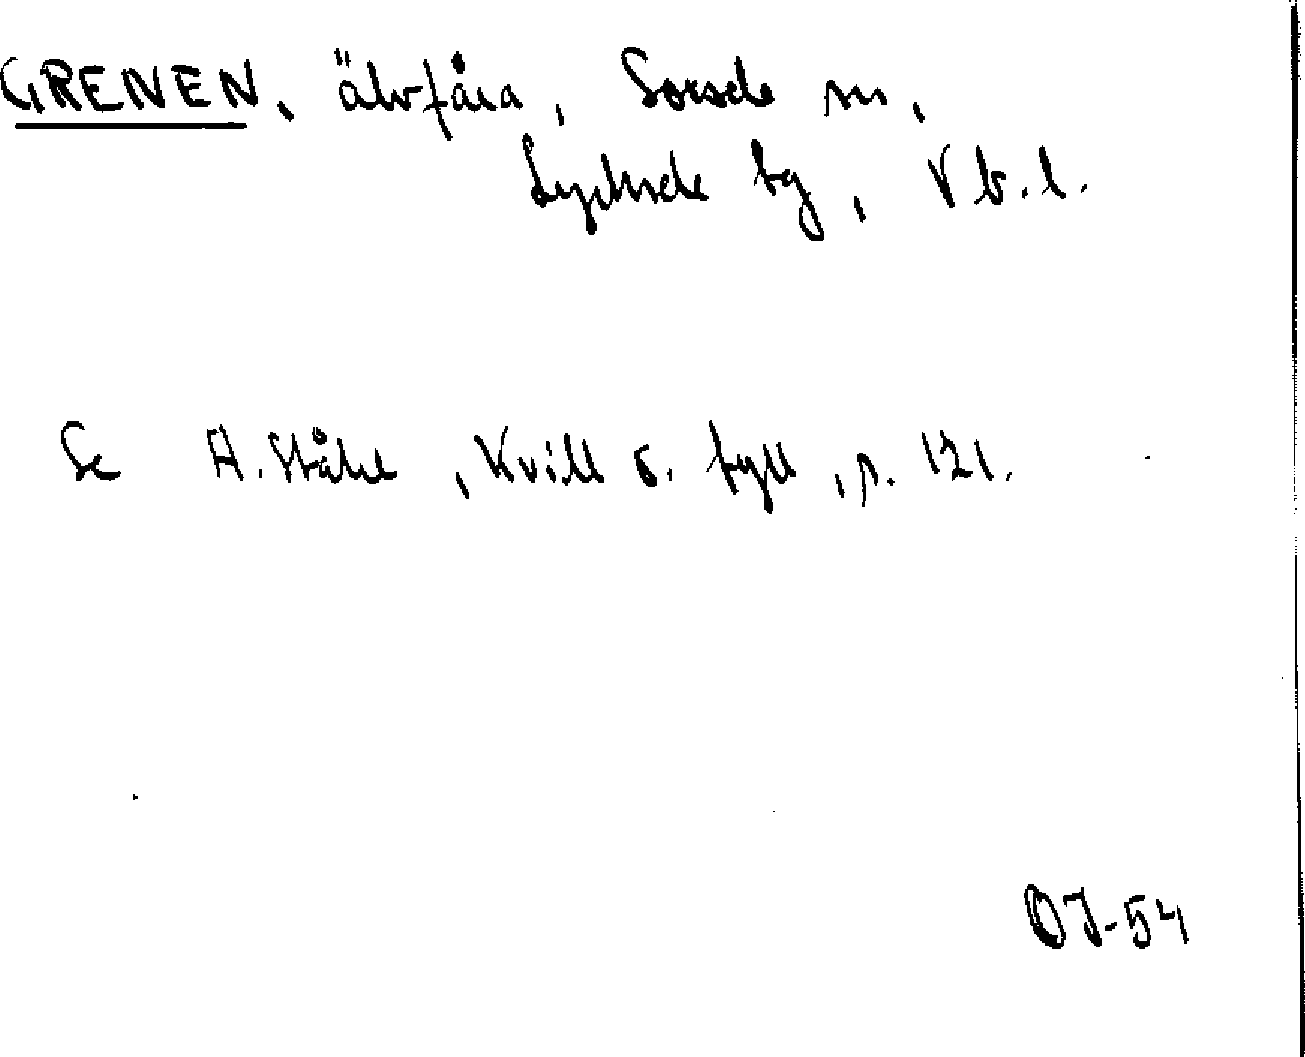 GRENEN, älvfåra, Sorsele sn,
Lycksele tg, Vb.l.
Se H. Ståhl, Kvill o. tyll, s. 121.
OJ-54